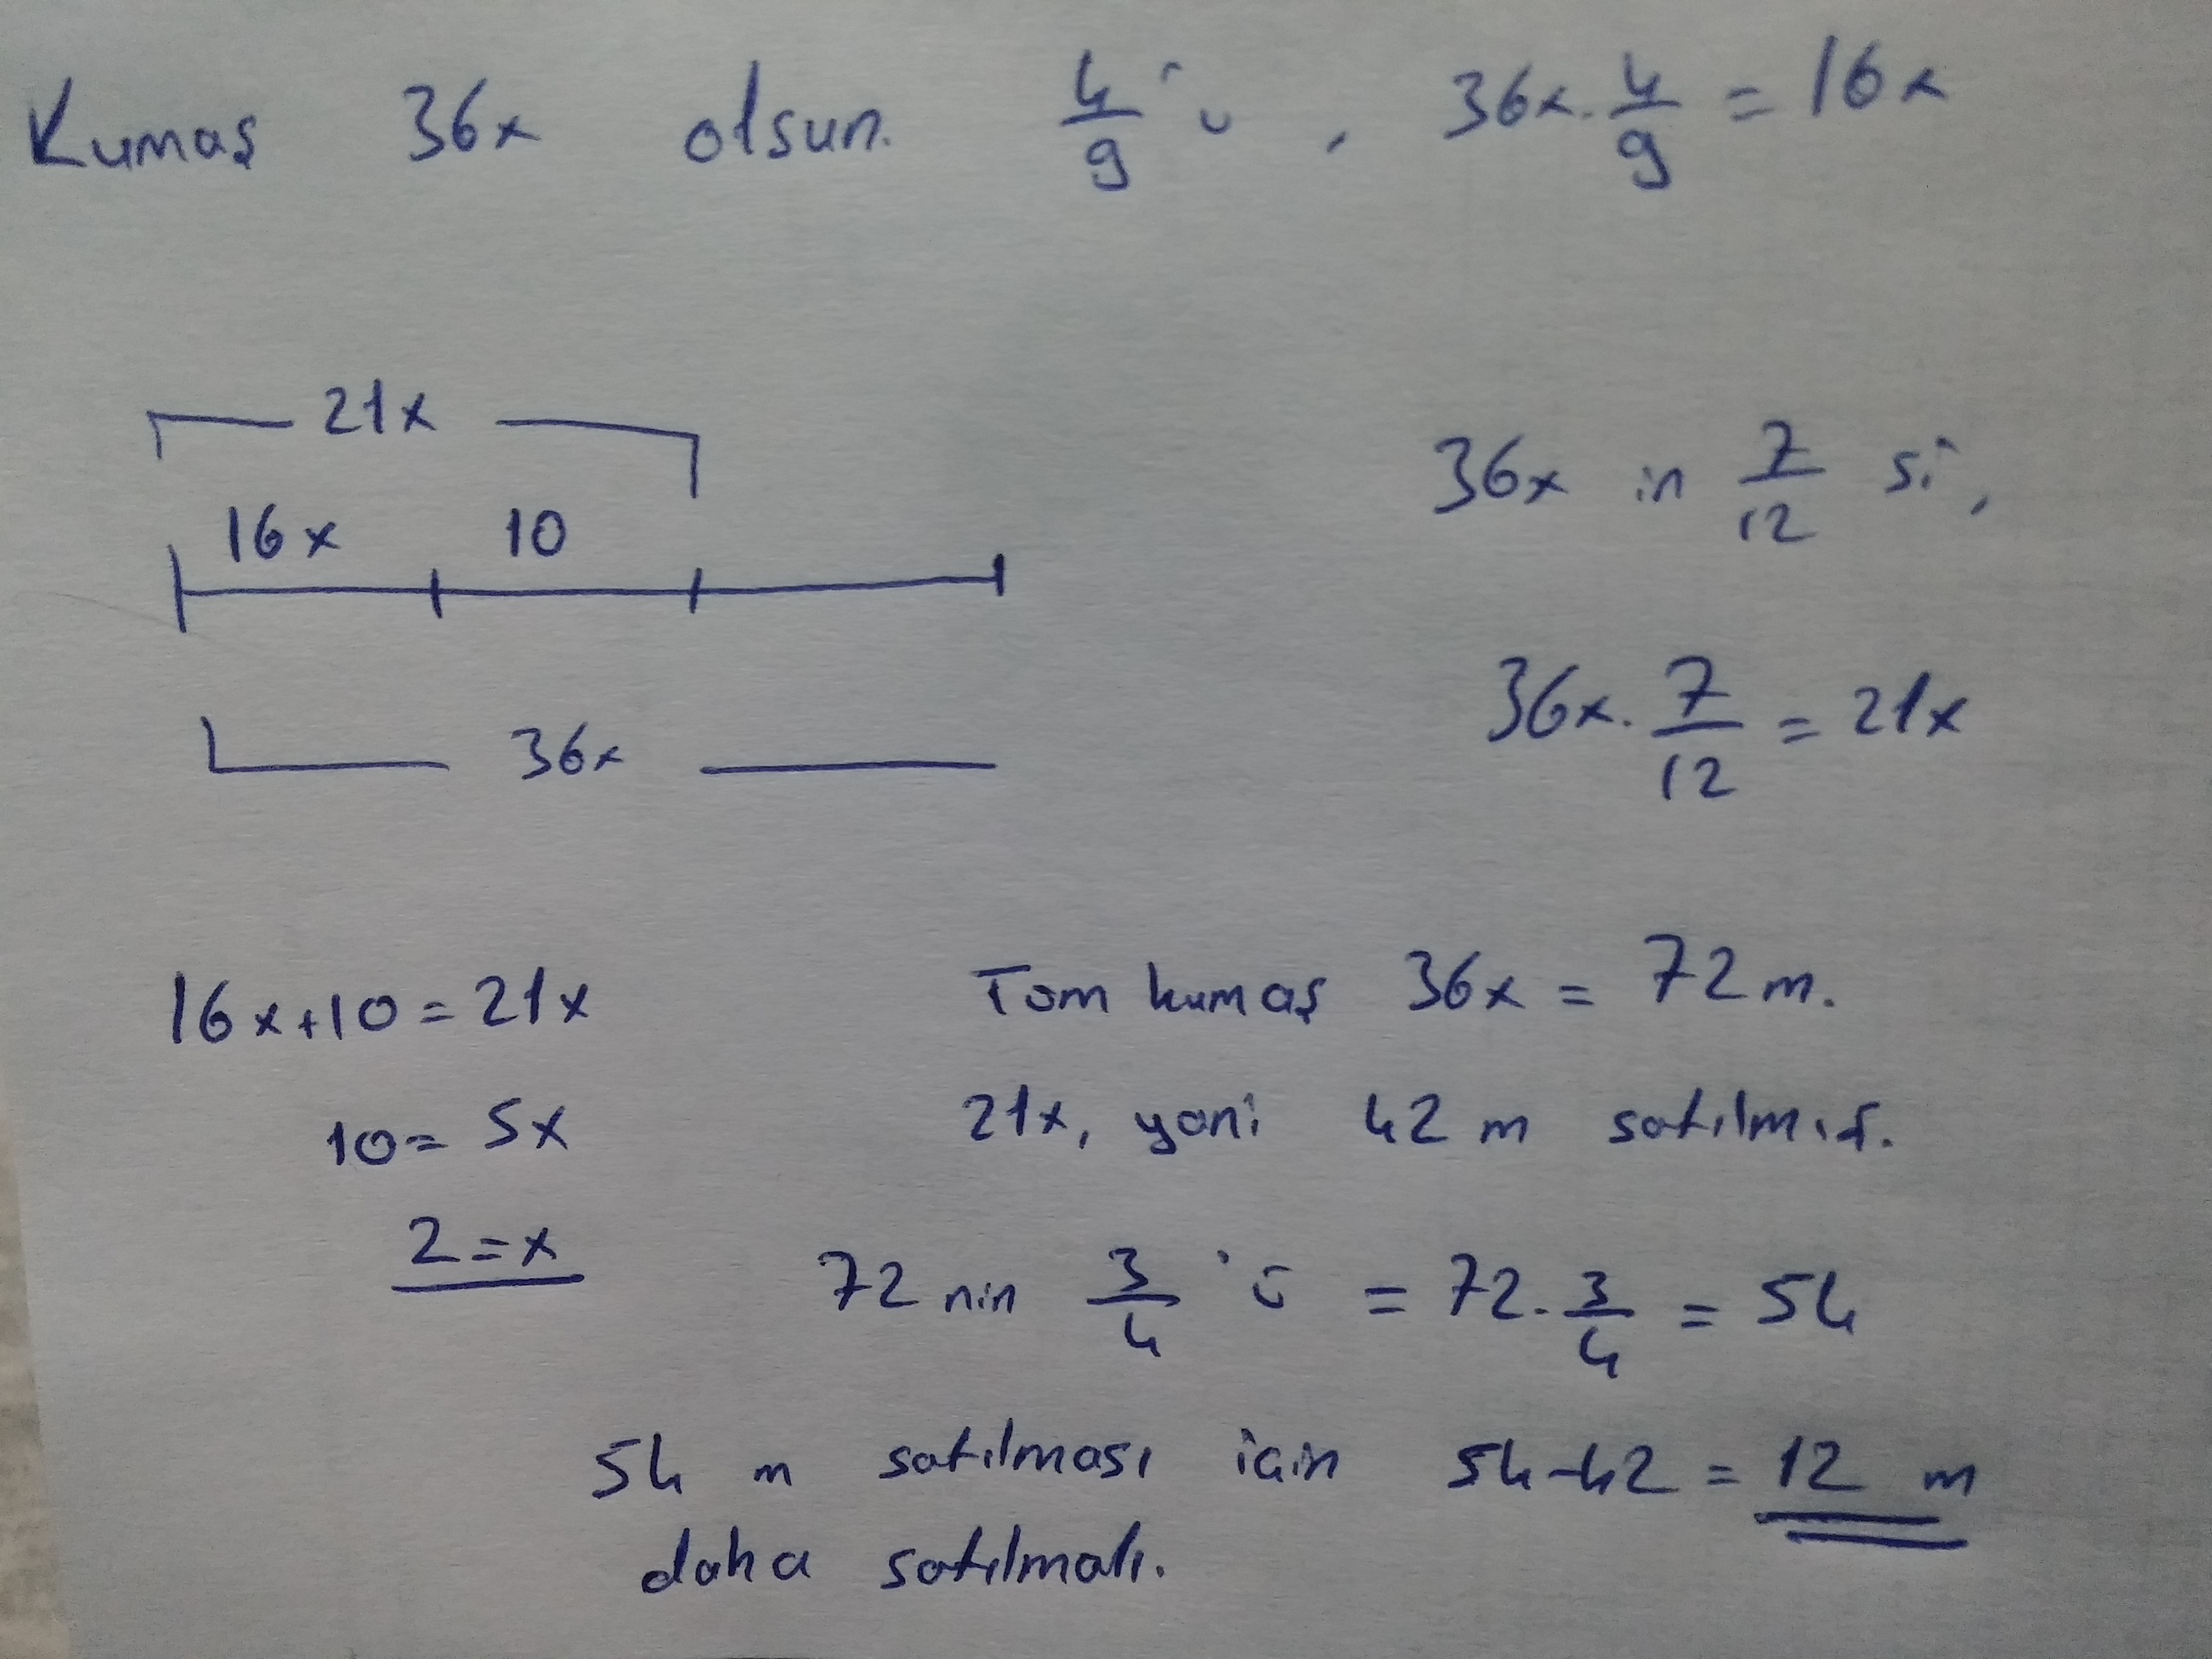 Kumaş 36x olsun. 4/9 ü, 36x . 4/9 = 16x
21x
16x 10
36x
36x in 7/12 si,
36x . 7/12 = 21x
16x + 10 = 21x
10 = 5x
2 = x
Tam kumaş 36x = 72 m.
21x, yani 42 m satılmış.
72 nin 3/4 ü = 72 . 3/4 = 54
54 m satılması için 54 - 42 = 12 m
daha satılmalı.